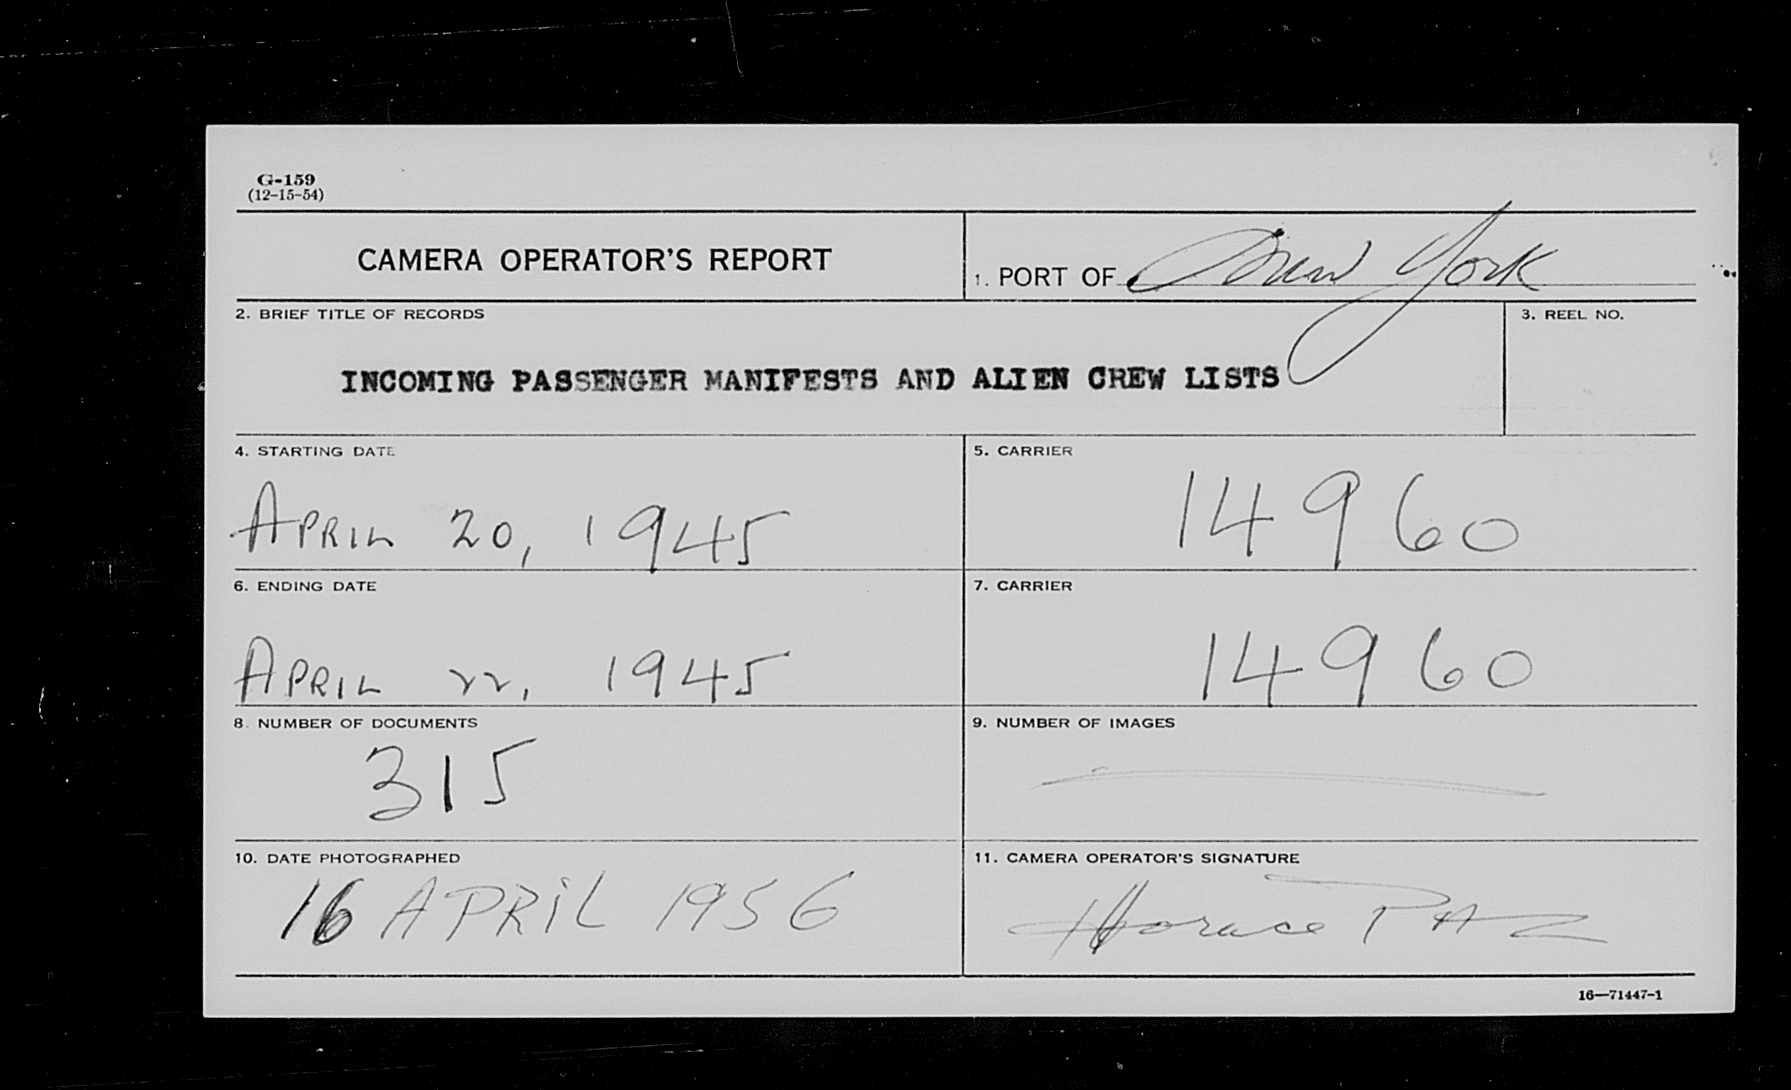 G-159
(12-15-54)
CAMERA OPERATOR'S REPORT
1. PORT OF New York
2. BRIEF TITLE OF RECORDS
3. REEL NO.
INCOMING PASSENGER MANIFESTS AND ALIEN CREW LISTS
4. STARTING DATE
5. CARRIER
APRIL 20, 1945
14960
6. ENDING DATE
7. CARRIER
APRIL 22, 1945
14960
8. NUMBER OF DOCUMENTS
9. NUMBER OF IMAGES
315
10. DATE PHOTOGRAPHED
11. CAMERA OPERATOR'S SIGNATURE
16 APRIL 1956
Horace PAZ
16—71447-1